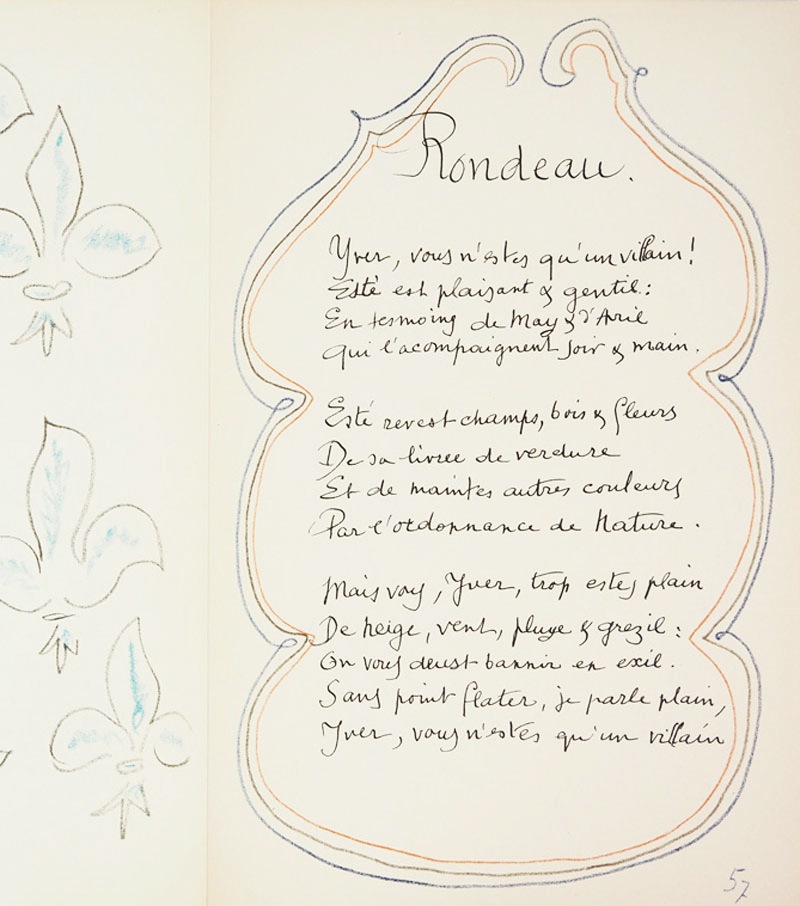 Rondeau.
Yver, vous n'estes qu'un villain!
Esté est plaisant & gentil:
En tesmoing de May & d'Avril
Qui l'acompaignent soir & main.
Esté revest champs, bois & fleurs
De sa livree de verdure
Et de maintes autres couleurs
Par l'ordonnance de Nature.
Mais vous, Yver, trop estes plain
De neige, vent, pluye & grezil:
On vous deust bannir en exil.
Sans point flater, je parle plain,
Yver, vous n'estes qu'un villain
57